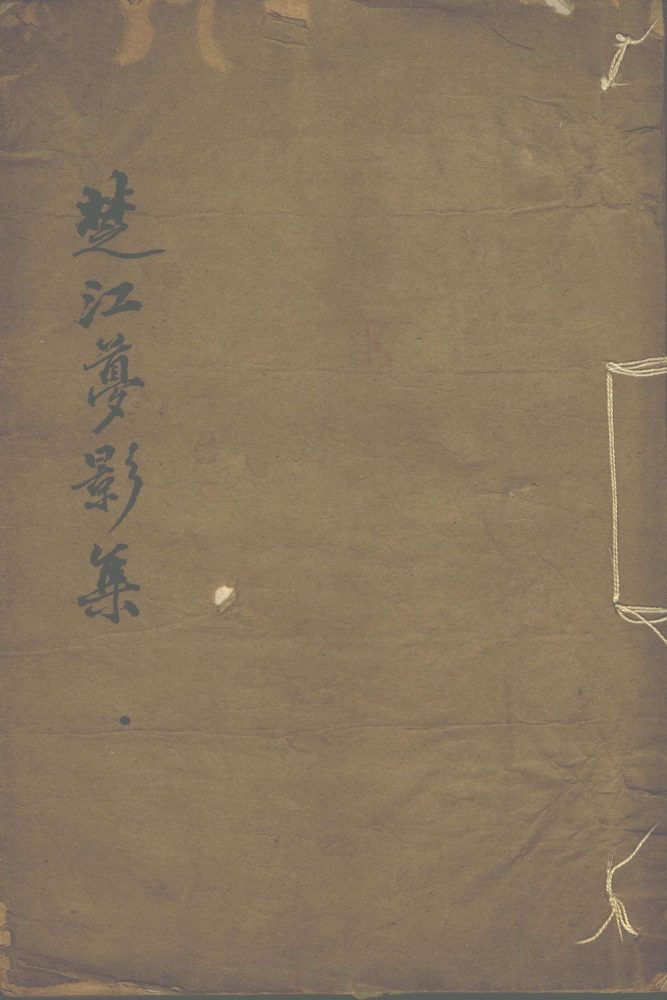 楚江夢影集